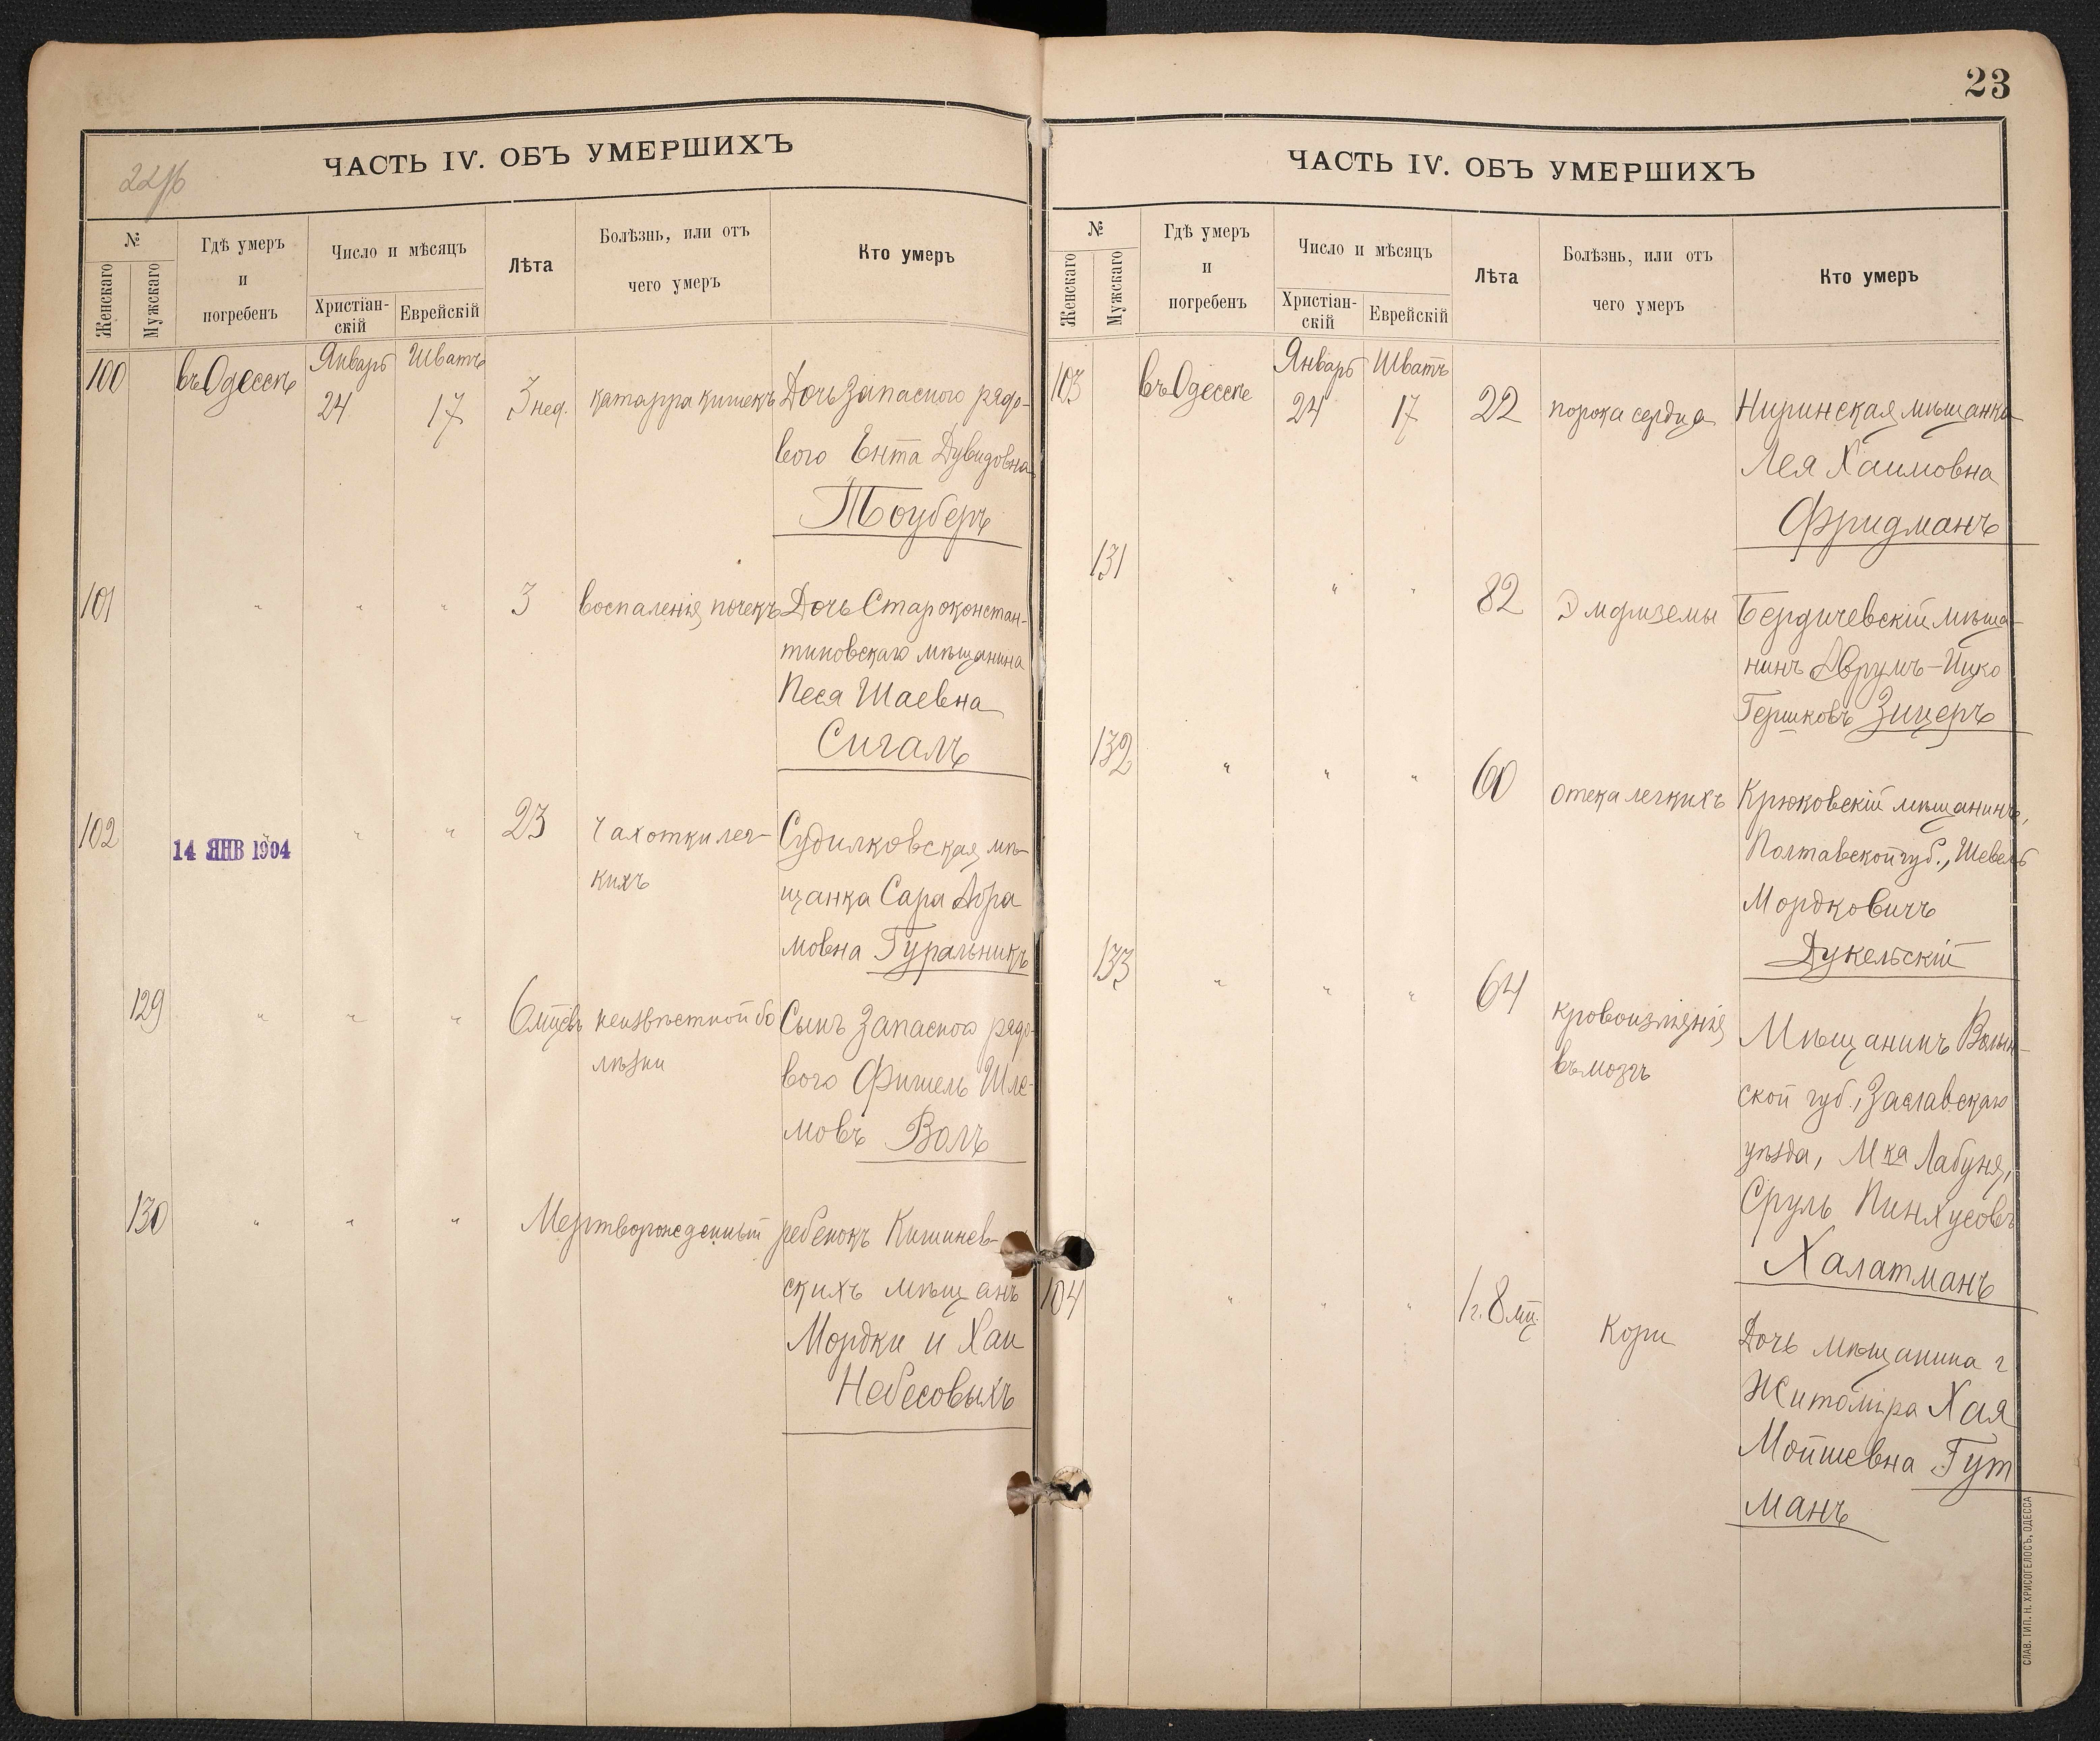 22/б
ЧАСТЬ IV. ОБЪ УМЕРШИХЪ
№
Женскаго
Мужскаго
Гдѣ умеръ
и
погребенъ
Число и мѣсяцъ
Христіан-
скій
Еврейскій
Лѣта
Болѣзнь, или отъ
чего умеръ
Кто умеръ
100
въ Одессѣ
Январь
24
Шватъ
17
3 нед.
катарра кишекъ
Дочь запасного рядо-
вого Ента Дувидовна
Тоуберъ
101
" " "
3
воспаленія почекъ
Дочь Староконстан-
тиновскаго мѣщанина
Песя Шаевна
Сигалъ
102
14 ЯНВ 1904
" "
23
чахотки лег-
кихъ
Судилковская мѣ-
щанка Сара Абра
мовна Гуральникъ
129
" " "
6 мцевъ
неизвѣстной бо
лѣзни
Сынъ запасного рядо-
вого Фишель Шле-
мовъ Волъ
130
" " "
Мертворожденный ребенокъ Кишинев-
скихъ мѣщанъ
Мордки и Хаи
Небесовыхъ
23
ЧАСТЬ IV. ОБЪ УМЕРШИХЪ
№
Женскаго
Мужскаго
Гдѣ умеръ
и
погребенъ
Число и мѣсяцъ
Христіан-
скій
Еврейскій
Лѣта
Болѣзнь, или отъ
чего умеръ
Кто умеръ
103
въ Одессѣ
Январь
24
Шватъ
17
22
порока сердца
мѣщанка
Лея Хаимовна
Фридманъ
131
" " "
82
Эмфиземы
Бердичевскій мѣща-
нинъ Аврумъ-Ицко
Гершковъ Зицеръ
132
" " "
60
отека легкихъ
Крюковскій мѣщанинъ,
Полтавской губ., Шевель
Мордковичъ
Дукельскій
133
" " "
64
кровоизліянія
въ мозгъ
Мѣщанинъ Волын-
ской губ., Заславскаго
уѣзда, Мка Лабуня,
Сруль Пинхусовъ
Халатманъ
104
" " "
1 г. 8 мц.
Кори
Дочь мѣщанина г
Житоміра Хая
Мойшевна Гут
манъ
СЛАВ. ТИП. Н. ХРИСОГЕЛОСЪ, ОДЕССА